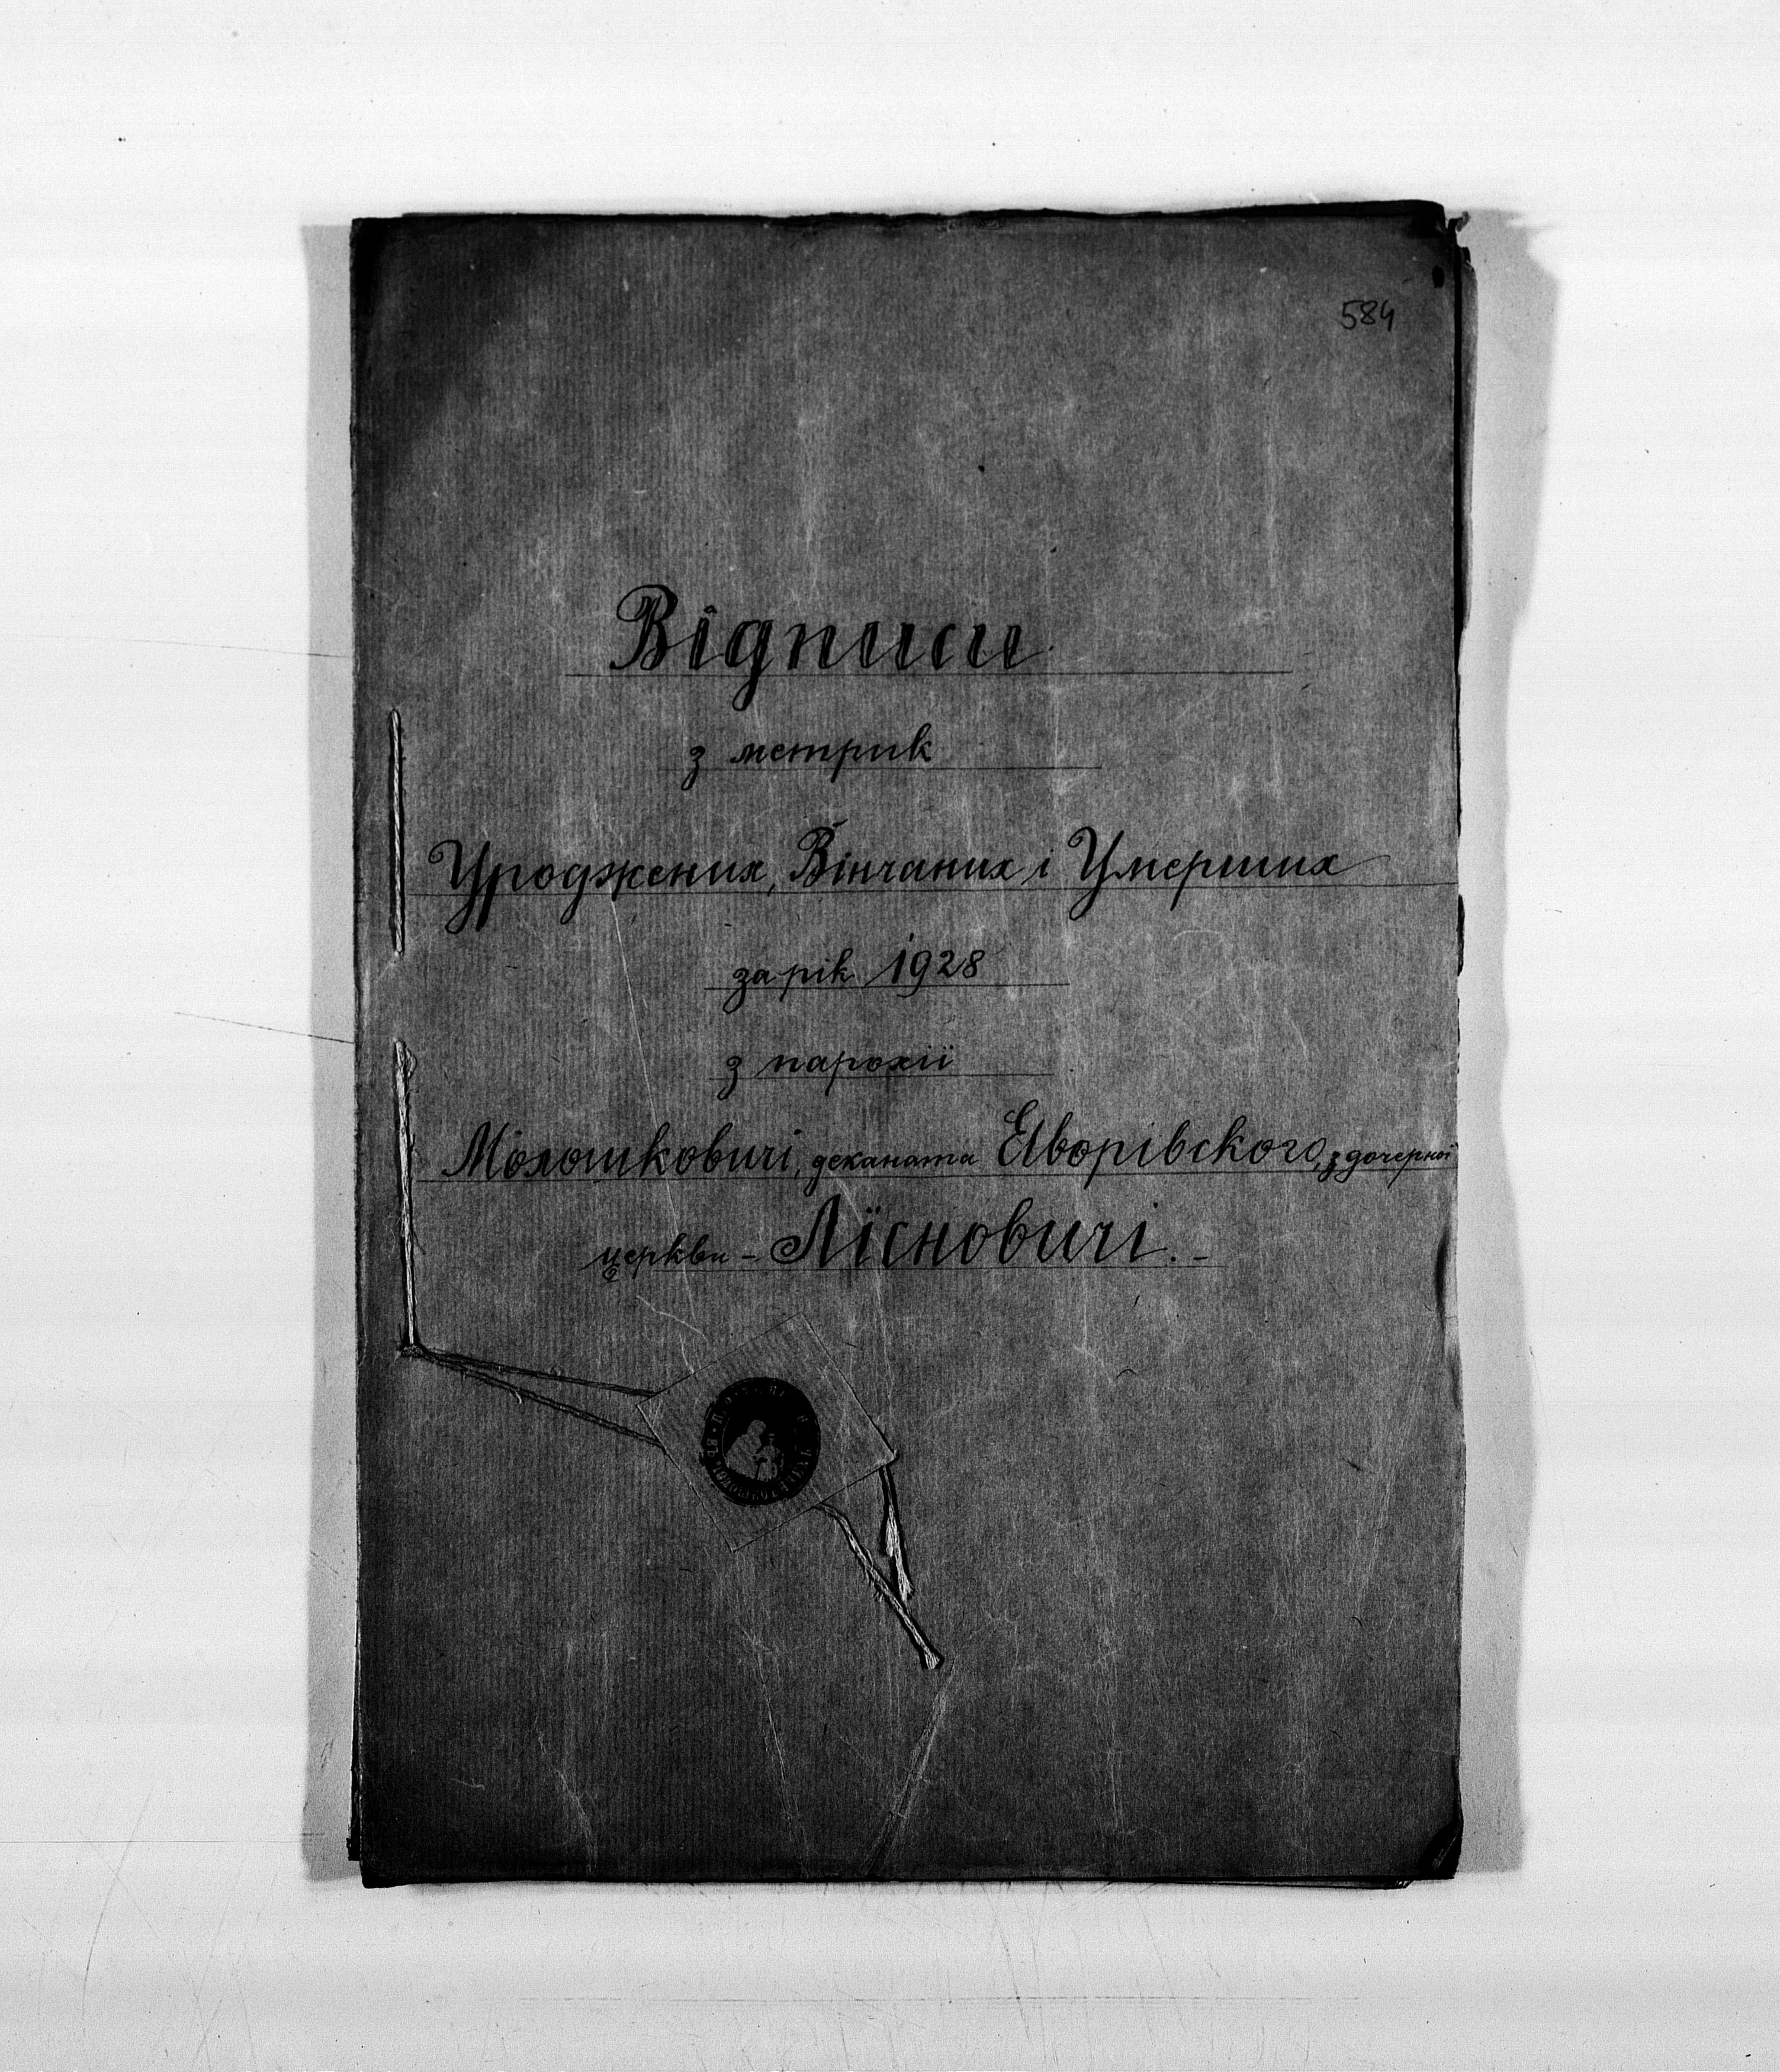 584
Відписи
з метрик
Уроджених, Вінчаних і Умерших
за рік 1928
з парохії
Молошковичі, деканата Яворівского, з дочерної
церкви – Лїсновичі. –